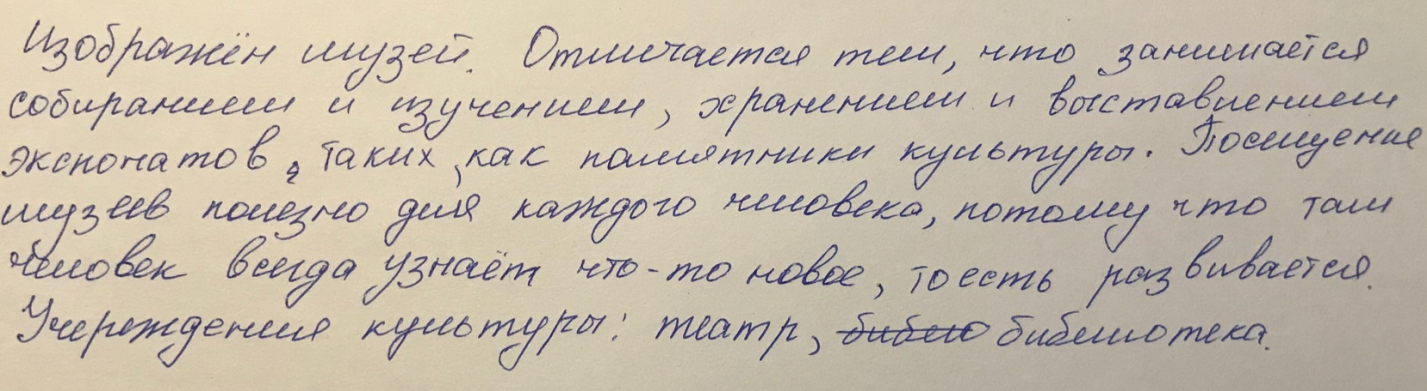 Изображён музей. Отличается тем, что занимается
собиранием и изучением, хранением и выставлением
экспонатов, таких, как памятники культуры. Посещение
музеев полезно для каждого человека, потому что там
человек всегда узнаёт что-то новое, тоесть развивается.
Учереждения культуры: театр, библио библиотека.